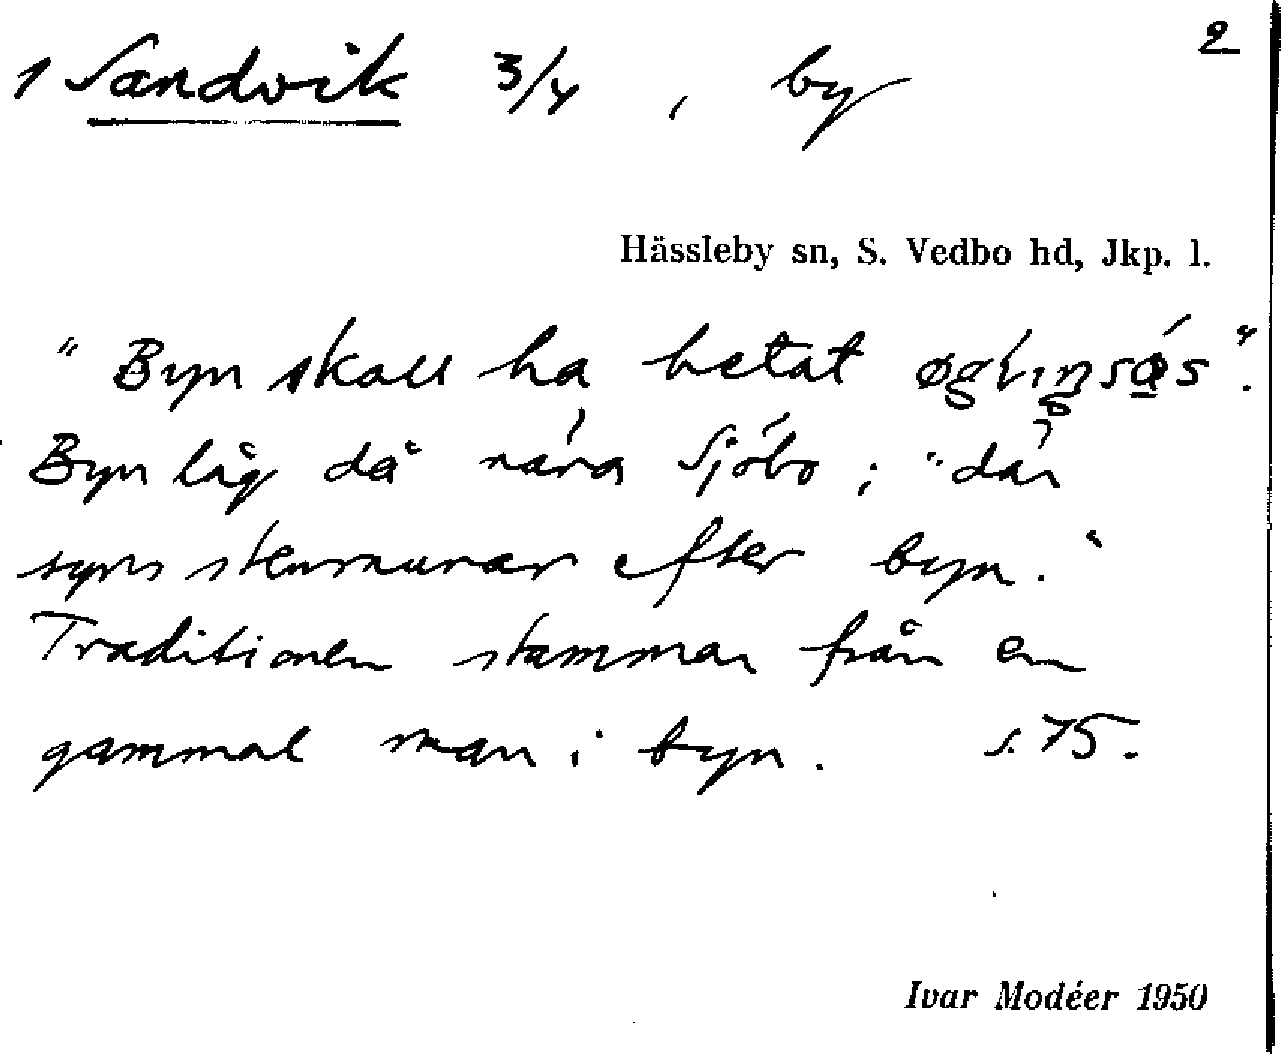 1 Sandvik 3/4 , by
2
Hässleby sn, S. Vedbo hd, Jkp. l.
"Byn skall ha hetat
Byn låg då nära Sjöbo ; "där
syns stenmurar efter byn."
Traditionen stammar från en
gammal man i byn. s. 75.
Ivar Modéer 1950